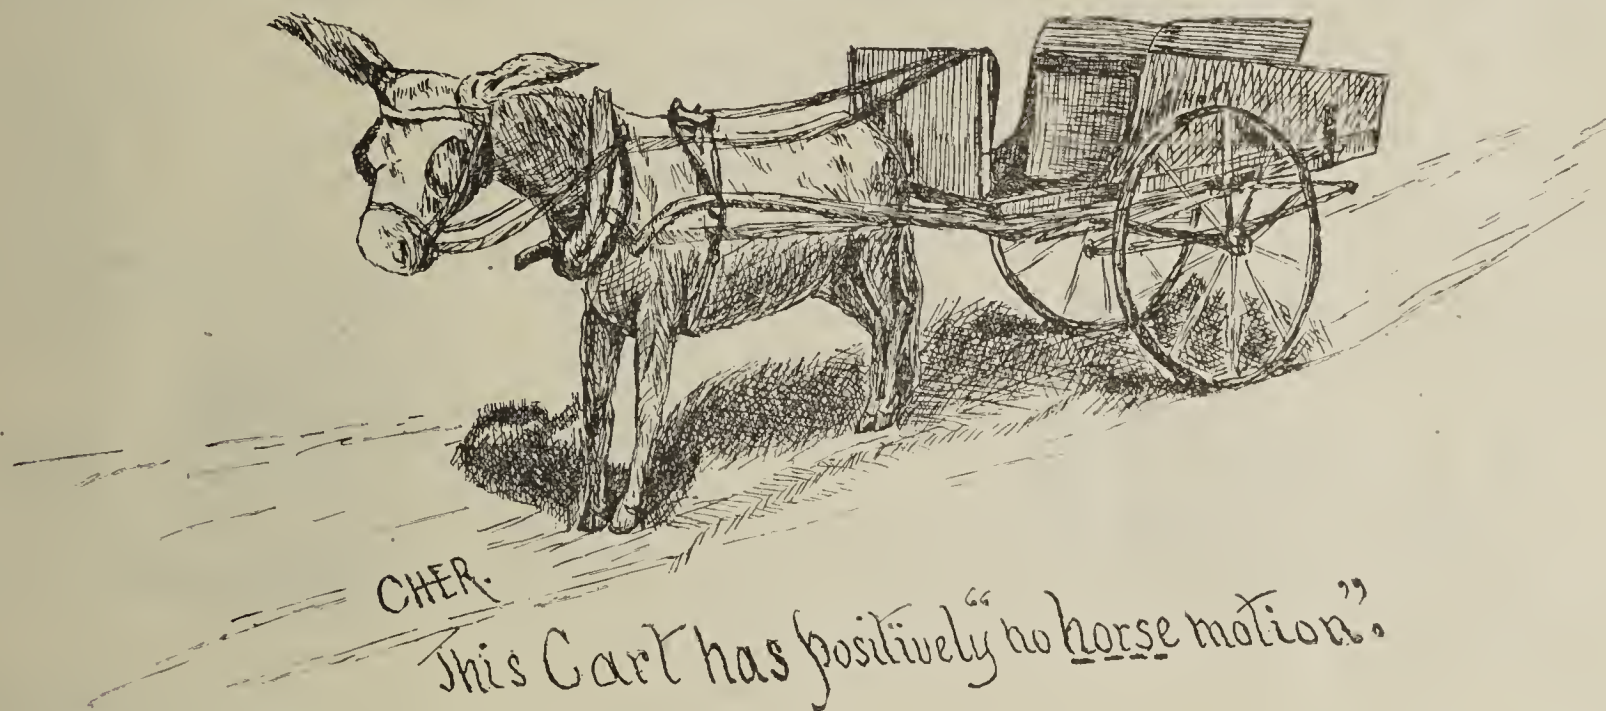 CHER.
This Cart has positively "no horse motion".